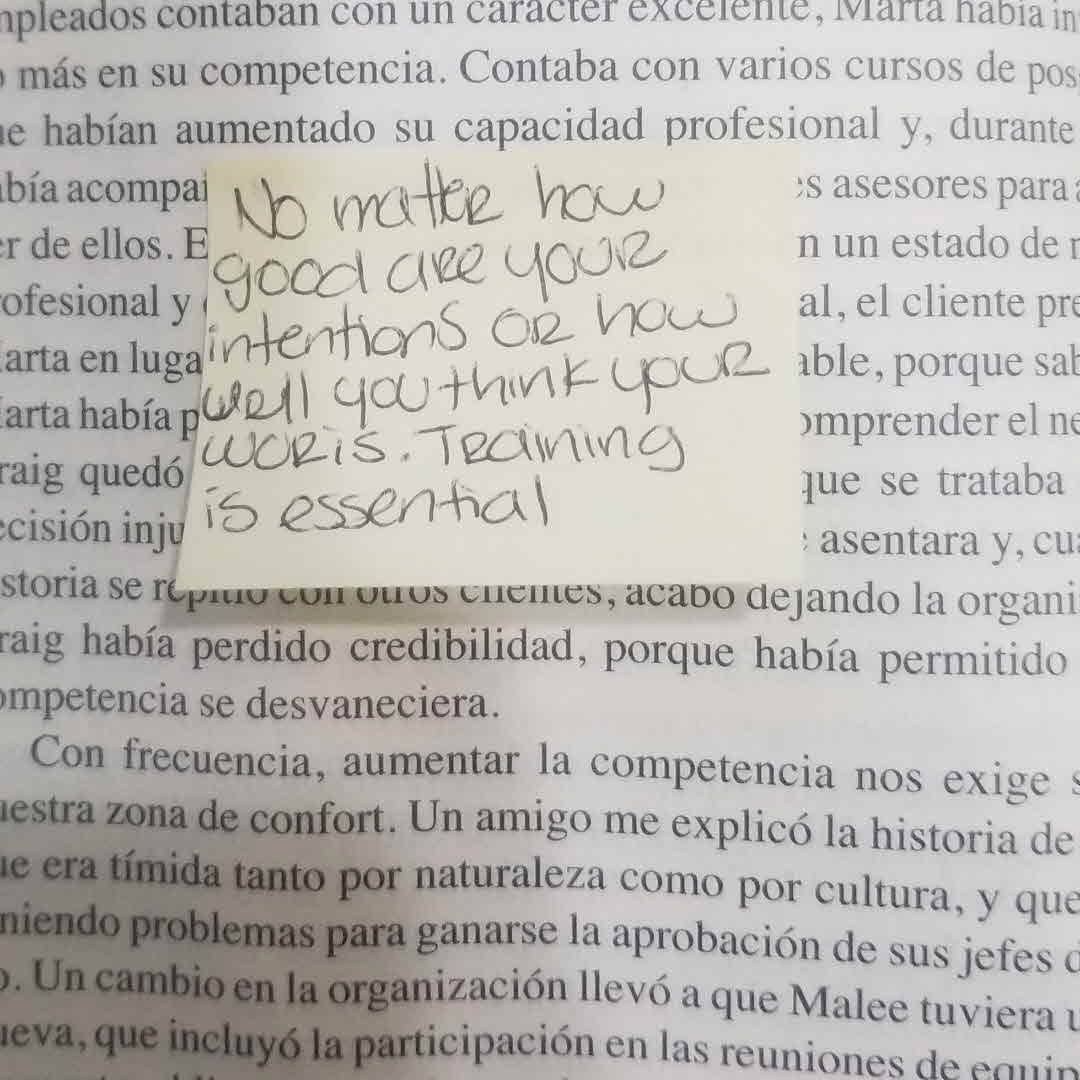 mpleados contaban con un carácter excelente, Marta había in
o más en su competencia. Contaba con varios cursos de pos
ue habían aumentado su capacidad profesional y, durante
abía acompañ
es asesores para a
er de ellos. E
n un estado de
rofesional y
al, el cliente pre
arta en luga
able, porque sab
arta había p
omprender el ne
raig quedó
que se trataba
ecisión inju
asentara y, cua
No matter how
good are your
intentions or how
well you think your
wor is. Training
is essential
storia se repitió con otros clientes, acabó dejando la organi
raig había perdido credibilidad, porque había permitido
ompetencia se desvaneciera.
Con frecuencia, aumentar la competencia nos exige s
uestra zona de confort. Un amigo me explicó la historia de
ue era tímida tanto por naturaleza como por cultura, y que
niendo problemas para ganarse la aprobación de sus jefes d
o. Un cambio en la organización llevó a que Malee tuviera u
ueva, que incluyó la participación en las reuniones de equip